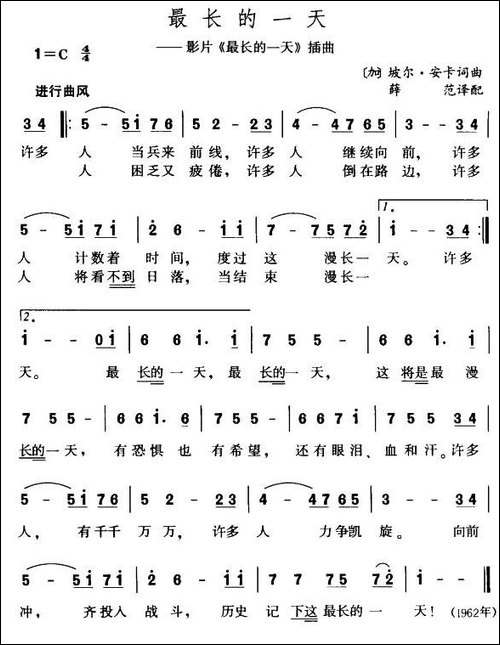 最长的一天
——影片《最长的一天》插曲
1=C 4/4
〔加〕坡尔·安卡词曲
进行曲风
薛 范译配
3 4 ‖: 5 - 5 i 7 6 | 5 2 - 2 3 | 4 - 4 7 6 5 | 5 - - 3 4 |
许多 人 当兵来 前线,许多 人 继续向 前,许多
人 困乏又 疲倦,许多 人 倒在路 边,许多
1. 
5 - 5 i 7 i | 2 6 - i i | 7 - 7 5 7 2 | i - - 3 4 :‖
人 计数着 时间,度过这 漫长一 天。许多
人 将看不到 日落,当结束 漫长一
2.
i - - 0 i | 6 6 i. i | 7 5 5 - | 6 6 i. i |
天。 最 长的一天,最 长的一天, 这将是最漫
7 5 5 5 - | 6 6 i. 6 | 7 5 5 - | 6 6 7 i | 7 5 5 3 4 |
长的一天, 有恐惧也 有希望, 还有眼泪、血和汗。许多
5 - 5 i 7 6 | 5 2 - 2 3 | 4 - 4 7 6 5 | 5 - - 3 4 |
人, 有千千 万万,许多 人 力争凯 旋。 向前
5 - 5 i 7 i | 2 6 - i i | 7 7 7 5 7 2 | i - - - ‖
冲, 齐投入 战斗,历史 记 下这最长的一 天! (1962年)